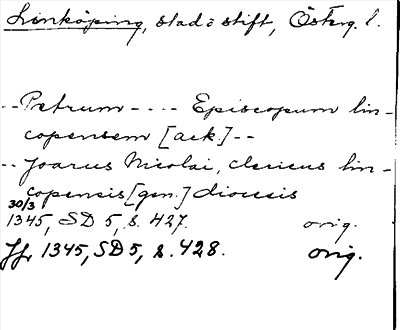 Linköping, stad o stift, Österg. l.
-- Petrum - - - - Episcopum lin-
copensem [ack.] --
-- Joarus Nicolai, clericus lin-
copensis [gen.] diocesis
30/3
1345, SD 5, s. 427. orig.
Jfr 1345, SD 5, s. 428. orig.